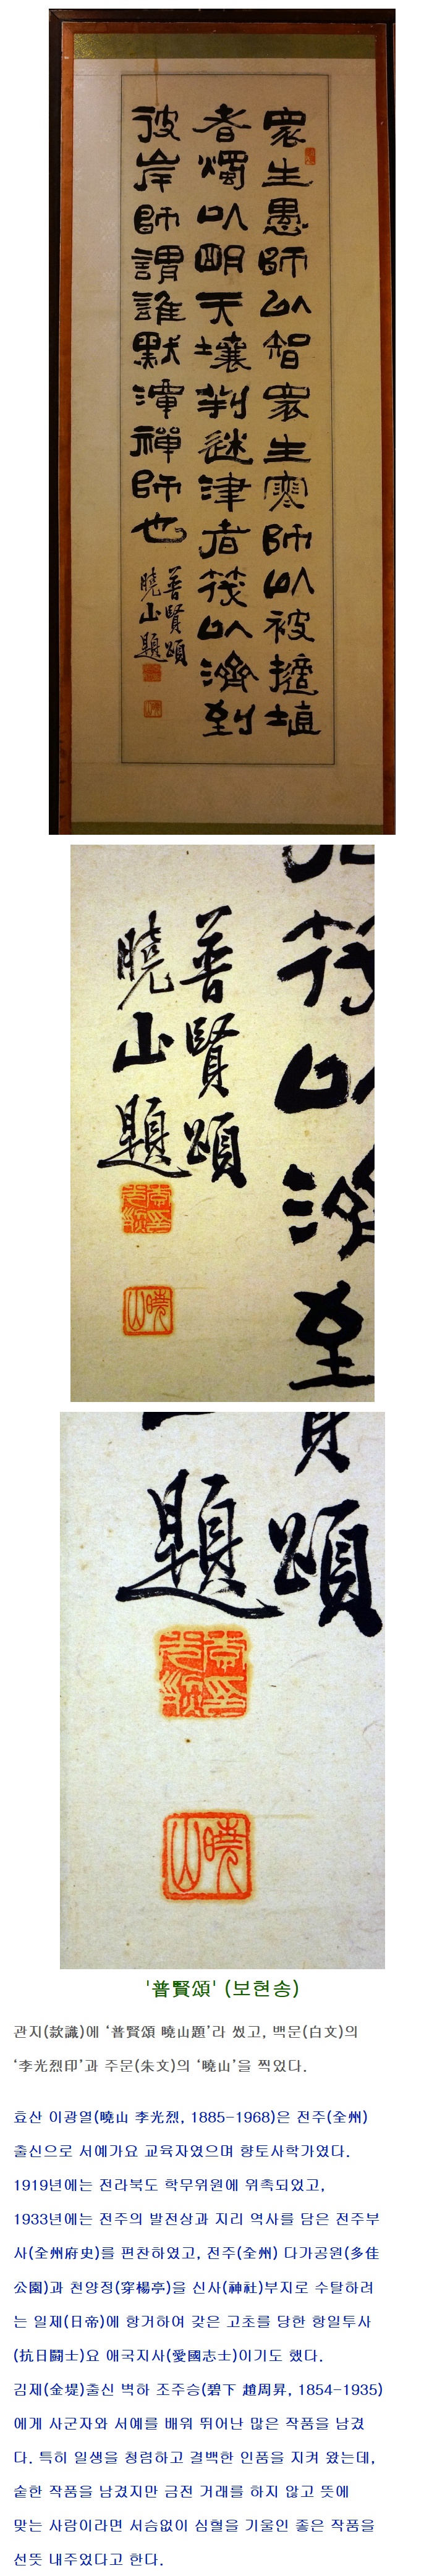 眾生愚師以智眾生寒師以被擿埴
者燭以明天壤判迷津者筏以濟到
彼岸師謂誰默渾禪師也
普賢頌
曉山題
筏以濟到
普賢頌
曉山題
李光烈印
曉山
頌
題
李光烈印
曉山
'普賢頌' (보현송)
관지(款識)에 ‘普賢頌 曉山題’라 썼고, 백문(白文)의
‘李光烈印’과 주문(朱文)의 ‘曉山’을 찍었다.
효산 이광열(曉山 李光烈, 1885-1968)은 전주(全州)
출신으로 서예가요 교육자였으며 향토사학가였다.
1919년에는 전라북도 학무위원에 위촉되었고,
1933년에는 전주의 발전상과 지리 역사를 담은 전주부
사(全州府史)를 편찬하였고, 전주(全州) 다가공원(多佳
公園)과 천양정(穿楊亭)을 신사(神社)부지로 수탈하려
는 일제(日帝)에 항거하여 갖은 고초를 당한 항일투사
(抗日鬪士)요 애국지사(愛國志士)이기도 했다.
김제(金堤)출신 벽하 조주승(碧下 趙周昇, 1854-1935)
에게 사군자와 서예를 배워 뛰어난 많은 작품을 남겼
다. 특히 일생을 청렴하고 결백한 인품을 지켜 왔는데,
숱한 작품을 남겼지만 금전 거래를 하지 않고 뜻에
맞는 사람이라면 서슴없이 심혈을 기울인 좋은 작품을
선뜻 내주었다고 한다.